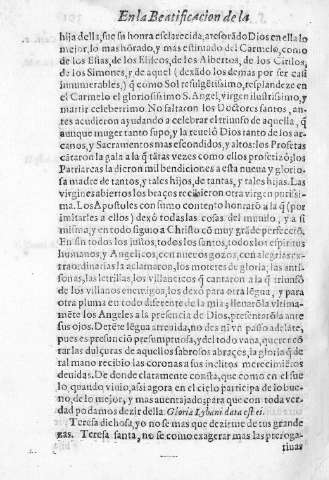 En la Beatificacion de la
hija della, fue su honra esclarecida, atesorãdo Dios en ella lo
mejor, lo mas hõrado, y mas estimado del Carmelo, como
de los Elias, de los Eliseos, de los Albertos, de los Cirilos,
de los Simones, y de aquel (dexãdo los demas por ser casi
innumerables,) q̃ como Sol refulgẽtissimo, resplandeze en
el Carmelo el gloriosissimo S. Angel, virgen ilustrissimo, y
martir celeberrimo. No faltaron los Doctores santos, an-
tes acudieron ayudando a celebrar el triunfo de aquella, q̃
aunque muger tanto supo, y la reueló Dios tanto de los ar-
canos, y Sacramentos mas escondidos, y altos: los Profetas
cãtaron la gala a la q̃ tãtas vezes como ellos profetizó; los
Patriarcas la dieron mil bendiciones a esta nueua y glorio-
sa madre de tantos, y tales hijos, de tantas, y tales hijas. Las
virgines abiertos los braços recibieron otra virgen purissi-
ma. Los Apostoles con sumo contento honrarõ a la q̃ (por
imitarles a ellos) dexó todas las cosas del mundo, y a si
misma, y en todo siguio a Christo cõ muy grãde perfecciõ.
En fin todos los justos, todos los santos, todos los espiritus
humanos, y Angelicos, con nueuos gozos, con alegrias ex-
traordinarias la aclamaron, los motetes de gloria, las antí-
fonas, las letrillas, los villancicos q̃ cantaron a la q̃ triunfó
de los villanos enemigos, los dexo para otra lẽgua, y para
otra pluma en todo diferente de la mia; lleuarõla vltima-
mẽte los Angeles a la presencia de Dios, presentarõla ante
sus ojos. Detẽte lẽgua atreuida, no des ni vn passo adelãte,
pues es presunciõ presumptuosa, y del todo vana, querer cõ
tar las dulçuras de aquellos sabrosos abraços, la gloria q̃ de
tal mano recibio las coronas a sus inclitos merecimiẽtos
deuidas. De donde claramente consta, que como en el sue
lo, quando viuio, assi agora en el cielo participa de lo bue-
no, de lo mejor, y mas auentajado; para que con toda ver-
dad podamos dezir della. Gloria Lybani data est ei.
Teresa dichosa, yo no se mas que dezirme de tus grande
zas. Teresa santa, no se como exagerar mas las preroga-
tiuas